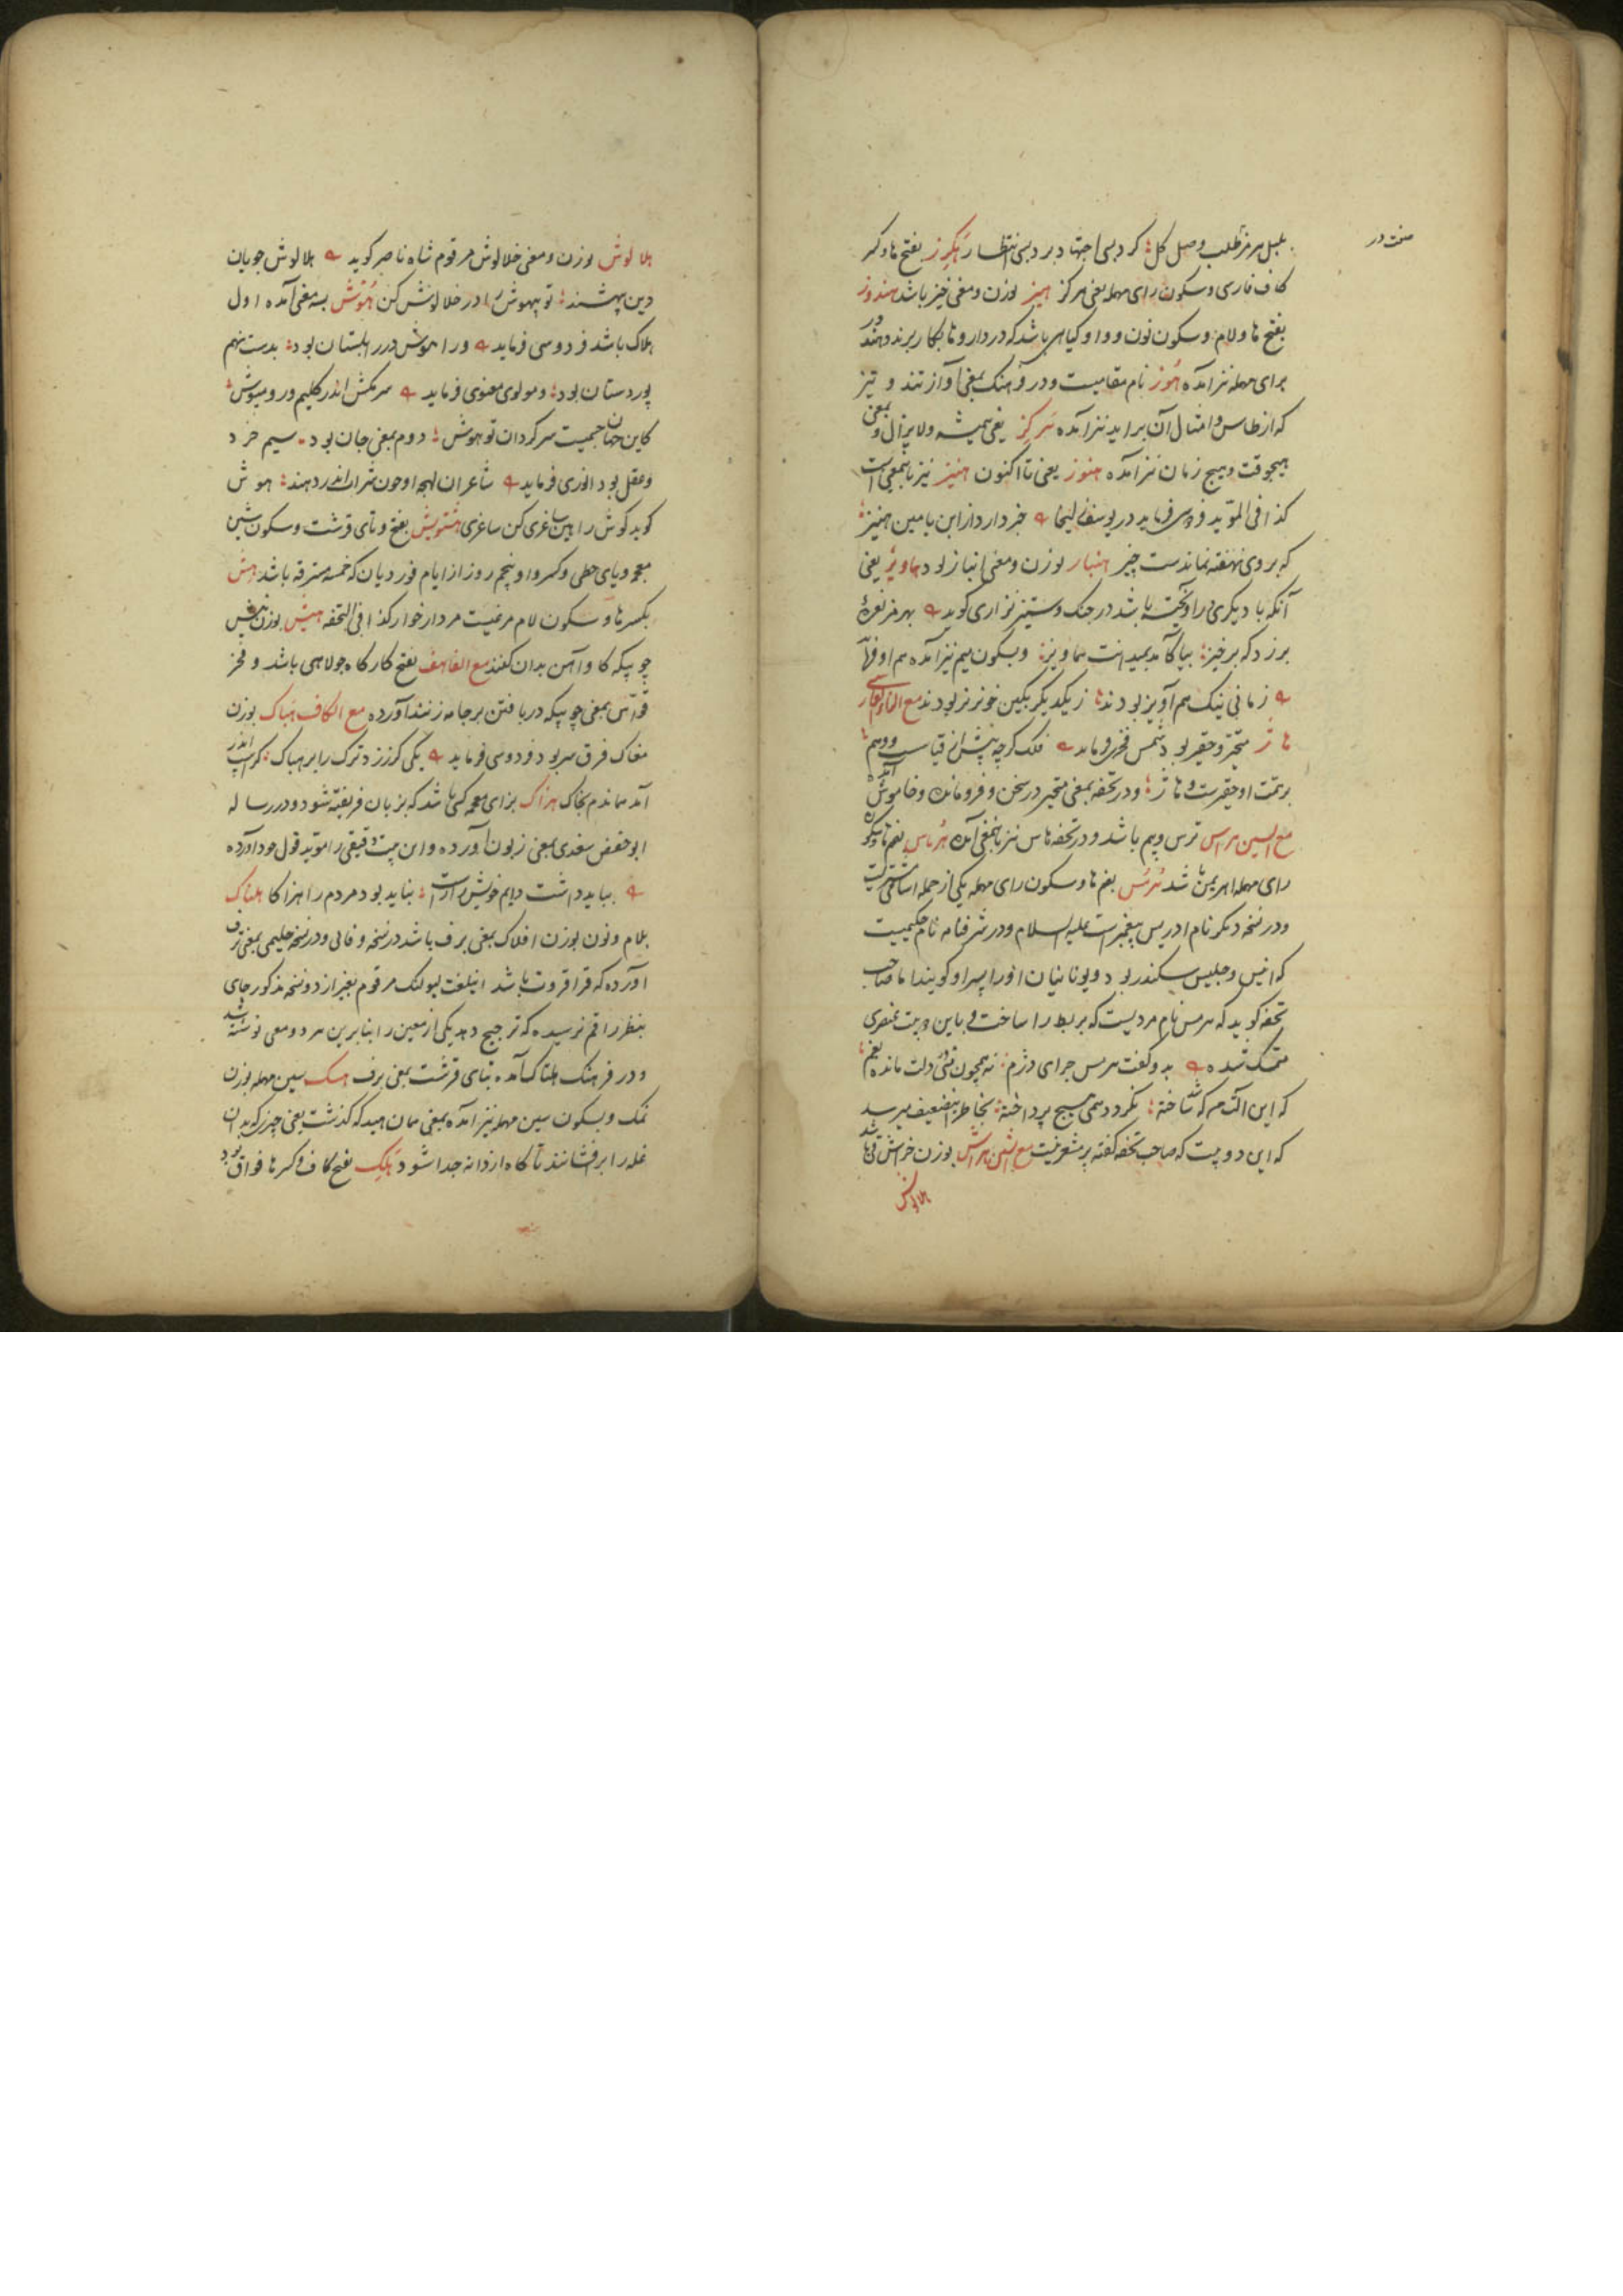 بلبل هر مز طلب وصل کل کر دبسی اجتهاد برد بسی انتظار هَکِرز بفتح ها و کسر
کاف فارسی و سکون رای مهمله یعنی هرکز هیز بوزن و معنی خیز باشد هندوز
بفتح ها و لام و سکون نون و واو کیاهی باشد که در داروها بکار برند و هندور
برای مهمله نیز آمده هُوز نام مقامیست و در فرهنک بمعنی آواز تند و تیز
که از طاس و امثال آن براید نیز آمده هرکز یعنی همیشه و لایزال و بمعنی
هیچوقت و هیچ زمان نیز آمده هنوز یعنی تا اکنون هنیز نیز باینمعنی است
کذا فی المؤید فردوسی فرماید در یوسف زلیخا خبر دارد از ابن یامین هنیز
که بروی نهفته نماندست چیز هنباز بوزن و معنی انباز بود هماویز یعنی
آنکه با دیکری درآویخته باشد در جنک و ستیز نزاری کوید بهر مز نعرهٔ
برزد که برخیز بیا کامد بمیدانت هماویز و بسکون میم نیز آمده هم او فرماید
زمانی نیک هم آویز بودند ز یکدیکر بکین خونریز بودند مع الزاء الفارسی
هاژ متحیر و حقیر بود شمس فخری فرماید فلک کرچه پیش از قیاست و وهم
بر همت او حقیرست و هاژ و در تحفه بمعنی متحیر در سخن و فرومانده و خاموش آمده
مع السین هراس ترس و بیم باشد و در تحفه هاس نیز باینمعنی آمده هُرماس بضم ها و سکون
رای مهمله اهریمن باشد هُرمُس بضم ها و سکون رای مهمله یکی از جمله اسامی مشتریست
و در نسخه دیکر نام ادریس پیغمبر است علیه السلام و در شرفنامه نام حکیمیست
که انیس و جلیس سکندر بود و یونانیان او را هرمس کویند اما صاحب
تحفه کوید که هرمس نام مردیست که بربط را ساخت و باین دو بیت عنصری
متمسک شده بدو کفت هرمس چرای دژم نه همچون منی دلت مانده بغم
که این آلتم که شد ساخته نکردد همی هیچ پرداخته بخاطر این ضعیف میرسد
که این دو بیت که صاحب تحفه کفته پر مشعر نیست مع الشین هراش بوزن خراش قی باشد
هلالوش
سخت در
هلالوش بوزن و معنی خلالوش مرقوم شاه ناصر کوید هلالوش جویان
دین بهشتند تو بیهوش را در خلالوش کن هُوش بسه معنی آمده اول
هلاک باشد فردوسی فرماید ورا هوش در زابلستان بود بدست تهم
پور دستان بود و مولوی معنوی فرماید سر مکش اندر کلیم و رو مپوش
کاین جهان جسمیست سرکردان تو هوش دوم بمعنی جان بود سیم خرد
و عقل بود انوری فرماید شاعران لهجه او چون شراب اندر دهند هوش
کوید کوش را هین ساغری کن ساغری هَشتویش بفتح و تای قرشت و سکون شین
معجمه و یای حطی و کسر واو پنجم روز از ایام فوردیان که خمسه مسترقه باشد هلش
بکسر ها و سکون لام مرغیست مردار خوار کذا فی التحفه هیش بوزن ریش
چوبیکه کاوآهن بدان کنند مع الفا هف بفتح کارکاه جولاهی باشد و فخر
قواس بمعنی چوبیکه دربافتن برجامه زنند آورده مع الکاف هَباک بوزن
مغاک فرق سر بود فردوسی فرماید یکی کرز زد ترک را بر هباک کز اسب اندر
آمد هماندم بخاک هزاک بزای معجمه کسی باشد که بزبان فریفته شود و در رساله
ابو حفص سغدی بمعنی زبون آورده و این بیت دقیقی را مؤید قول خود آورده
بباید داشت دایم خویش را راست نباید بود مردم را هزاکا هلناک
بلام و نون بوزن افلاک بمعنی برف باشد در نسخه وفائی و در نسخه حلیمی بمعنی ترف
آورده که قراقروت باشد اینلغت لیولنک مرقوم بغیر از دو نسخه مذکور جای
بنظر راقم نرسیده که ترجیح دهد یکی از معنیین را بنابرین هر دو معنی نوشته شد
و در فرهنک هلتاک آمده بتای قرشت بمعنی برف هسک بسین مهمله بوزن
نمک و بسکون سین مهمله نیز آمده بمعنی همان هید که کذشت یعنی چیزی که بدان
غله را برافشانند تا کاه از دانه جدا شود هَلک بفتح کاف و کسر ها فواق بود